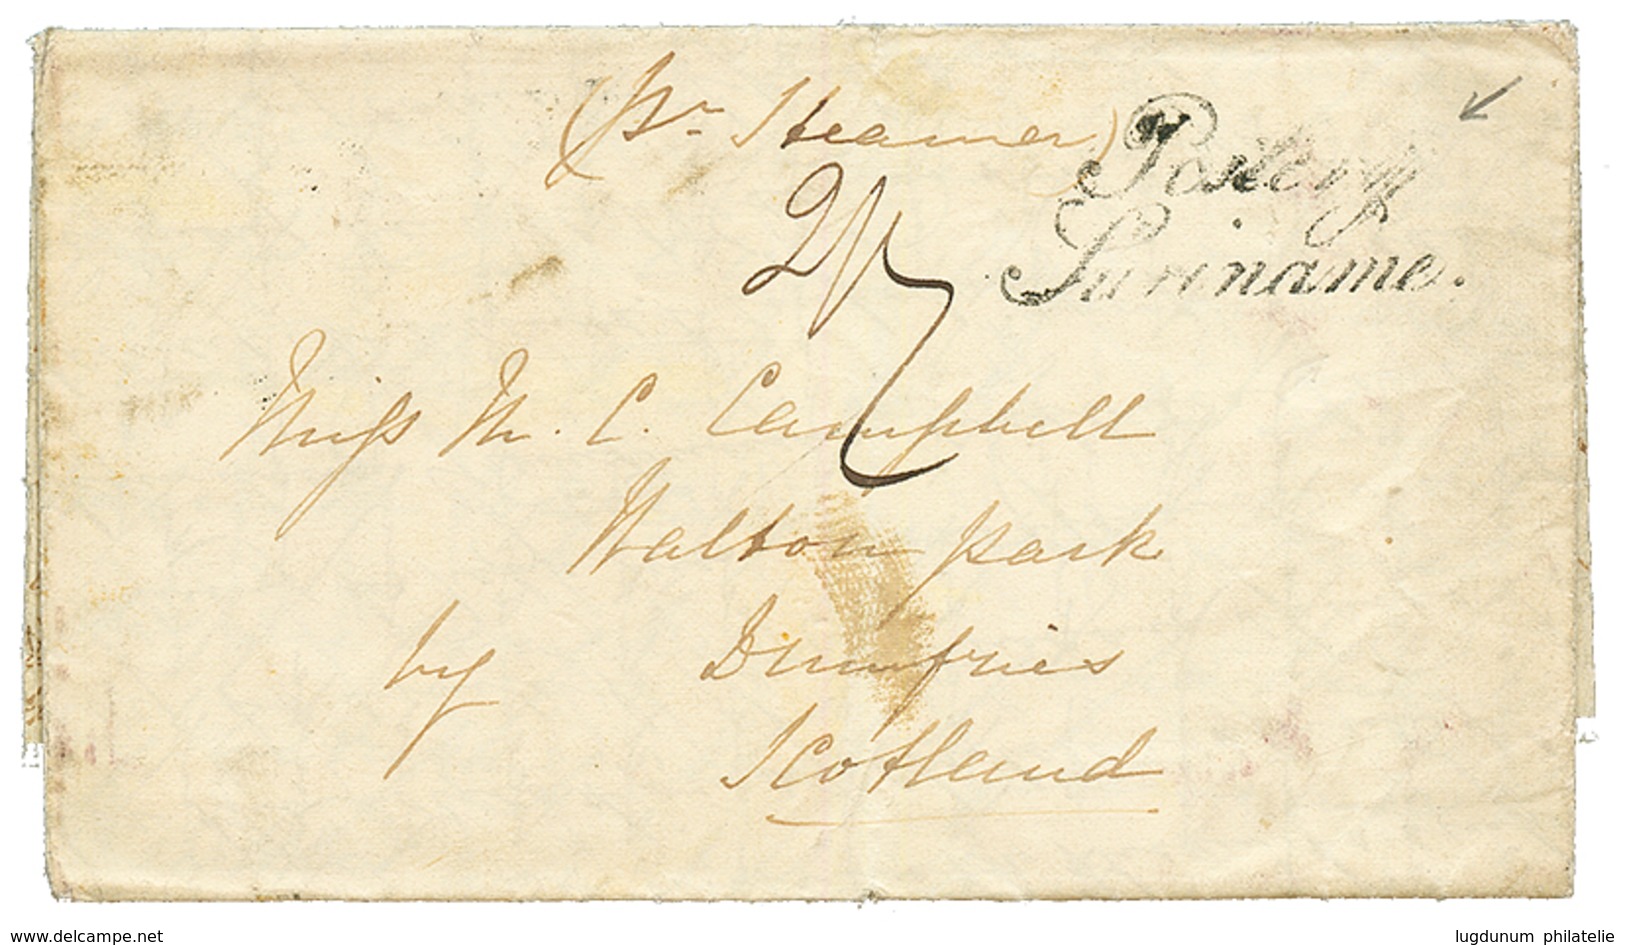 (pr Steamer)
Postery
Suriname.
2/
Miss M. C. Campbell
Walton park
by Dumfries
Scotland
www.delcampe.net
lugdunum philatelie